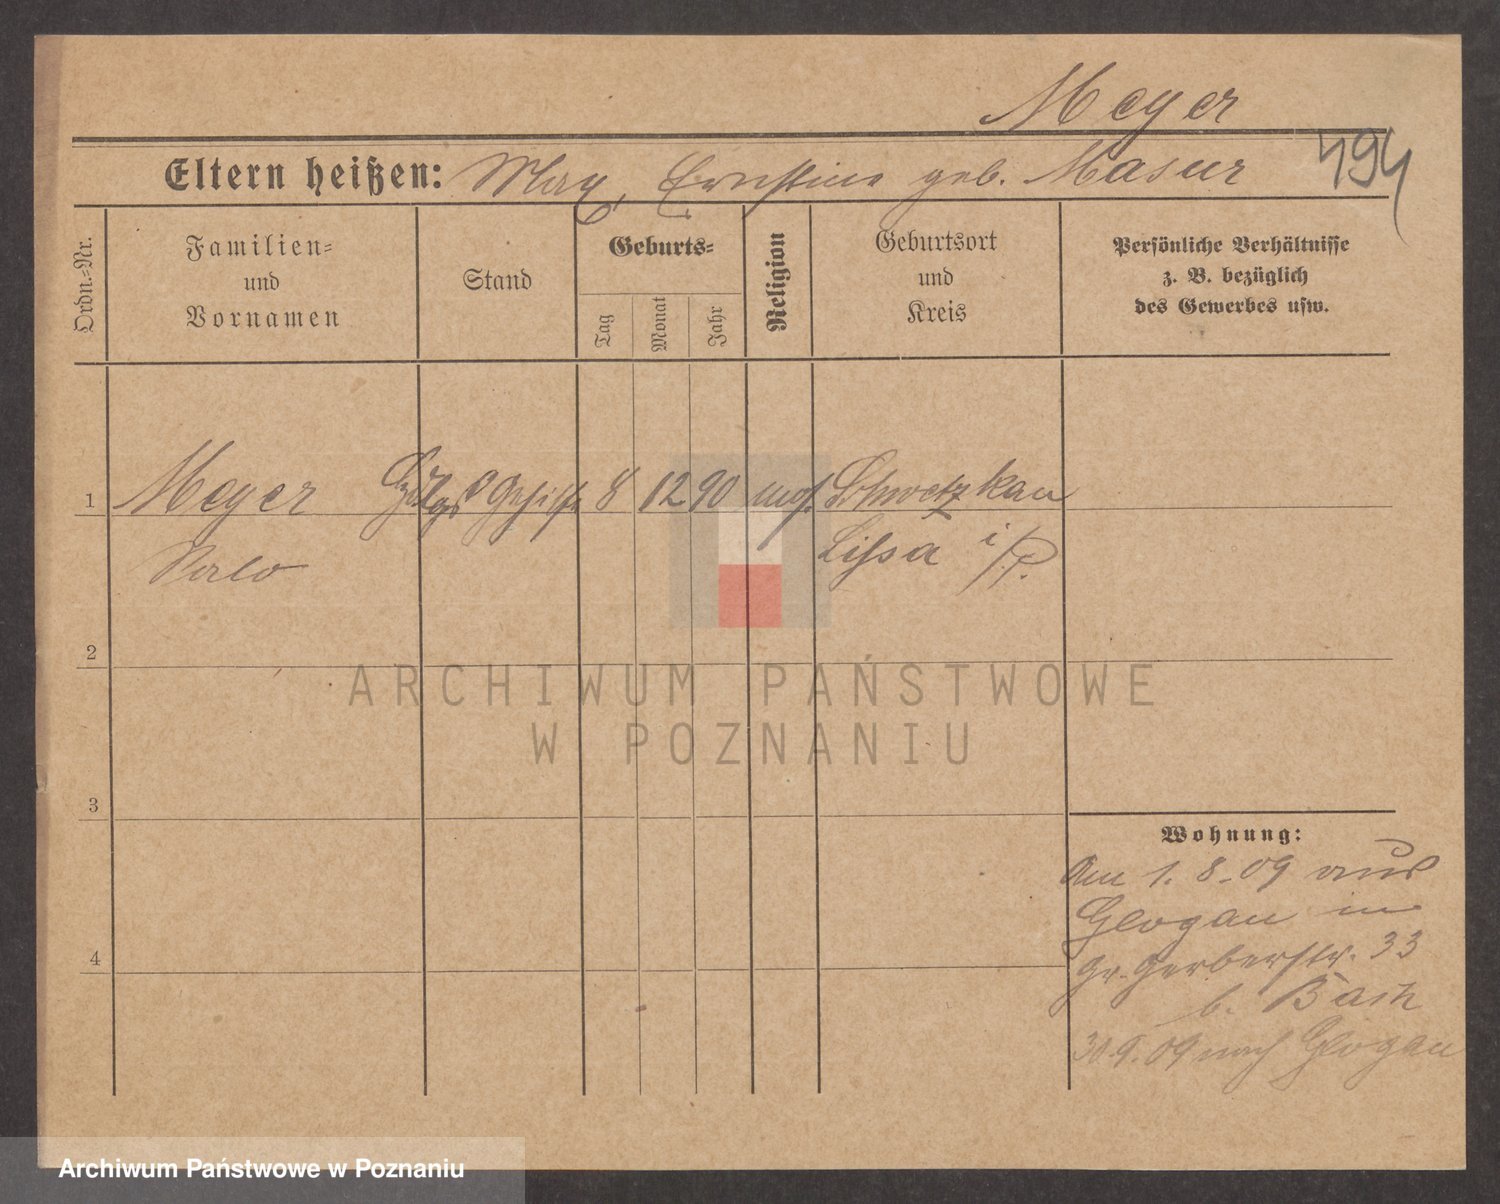 Meyer
494
Eltern heißen: Max, Ernstine geb. Masur
Ordn.=Nr.
Familien=
und
Vornamen
Stand
Geburts=
Tag
Monat
Jahr
Religion
Geburtsort
und
Kreis
Persönliche Verhältnisse
z. B. bezüglich
des Gewerbes usw.
1
Meyer
8 12 90 mos. Schwetzkau
Lissa i/P.
2
3
4
Wohnung:
Am 1. 8. 09 aus
Glogau in
Gr. Gerberstr. 33
b. Basch
30.9.09 nach Glogau
ARCHIWUM PAŃSTWOWE
W POZNANIU
Archiwum Państwowe w Poznaniu